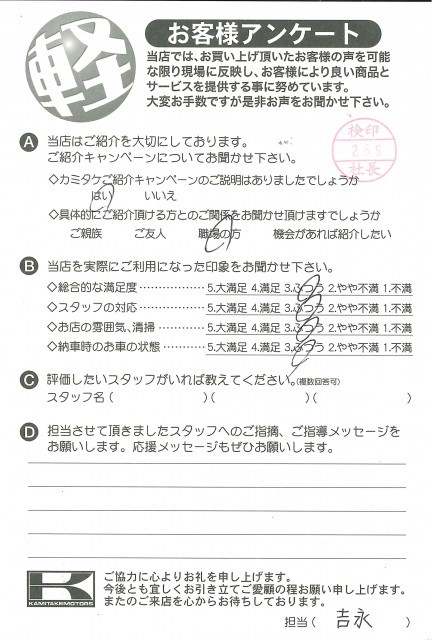 軽
お客様アンケート
当店では、お買い上げ頂いたお客様の声を可能
な限り現場に反映し、お客様により良い商品と
サービスを提供する事に努めています。
大変お手数ですが是非お声をお聞かせ下さい。
検印
2.6.5
社長
A 当店はご紹介を大切にしております。
ご紹介キャンペーンについてお聞かせ下さい。
◇カミタケご紹介キャンペーンのご説明はありましたでしょうか
はい いいえ
◇具体的にご紹介頂ける方とのご関係をお聞かせ頂けますでしょうか
ご親族 ご友人 職場の方 機会があれば紹介したい
B 当店を実際にご利用になった印象をお聞かせ下さい。
◇総合的な満足度………………5.大満足 4.満足 3.ふつう 2.やや不満 1.不満
◇スタッフの対応………………5.大満足 4.満足 3.ふつう 2.やや不満 1.不満
◇お店の雰囲気、清掃…………5.大満足 4.満足 3.ふつう 2.やや不満 1.不満
◇納車時のお車の状態…………5.大満足 4.満足 3.ふつう 2.やや不満 1.不満
C 評価したいスタッフがいれば教えてください。(複数回答可)
スタッフ名( )( )( )
D 担当させて頂きましたスタッフへのご指摘、ご指導メッセージを
お願いします。応援メッセージもぜひお願いします。
K
KAMITAKEMOTORS
ご協力に心よりお礼を申し上げます。
今後とも宜しくお引き立てご愛顧の程お願い申し上げます。
またのご来店を心からお待ちしております。
担当( 吉永 )